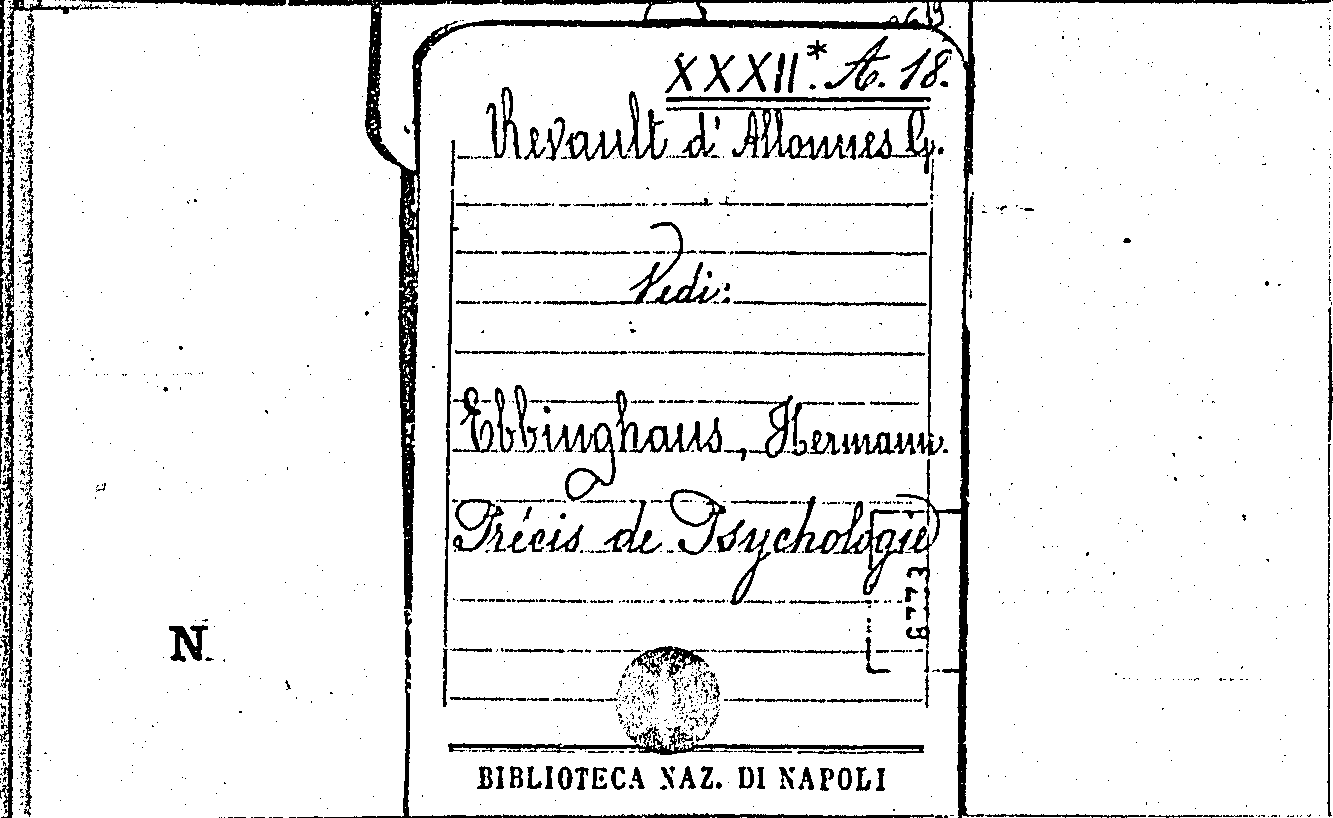 XXXII.* A. 18.
Revault d'Allonnes G.
Vedi:
Ebbinghaus, Hermann.
Précis de Psychologie
8773
N
BIBLIOTECA NAZ. DI NAPOLI